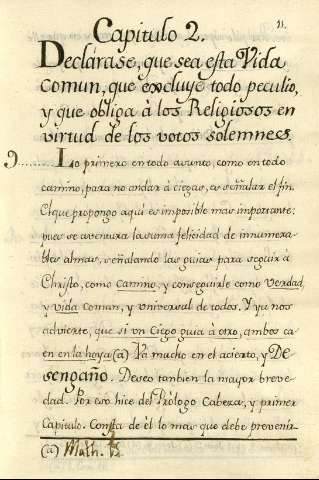 11.
Capitulo 2.
Declárase, que sea esta Vida
comun, que excluye todo peculio,
y que obliga à los Religiosos en
virtud de los votos solemnes.
9......... Lo primero en todo asunto, como en todo
camino, para no andar à ciegas, es señalar el fin.
El que propongo aqui es imposible mas importante:
pues se aventura la suma felicidad de innumera-
bles almas, señalando las guias para seguir á
Christo, como Camino, y conseguirle como Verdad,
y Vida comun, y universal de todos. Y ya nos
advierte, que si un Ciego guia à otro, ambos ca-
en en la hoya (a) Vá mucho en el acierto, y De
sengaño. Deseo tanbien la mayor breve
dad. Por eso hice del Prólogo Cabeza, y primer
Capitulo. Consta de él lo mas que debe prevenir
(a) Math. 15